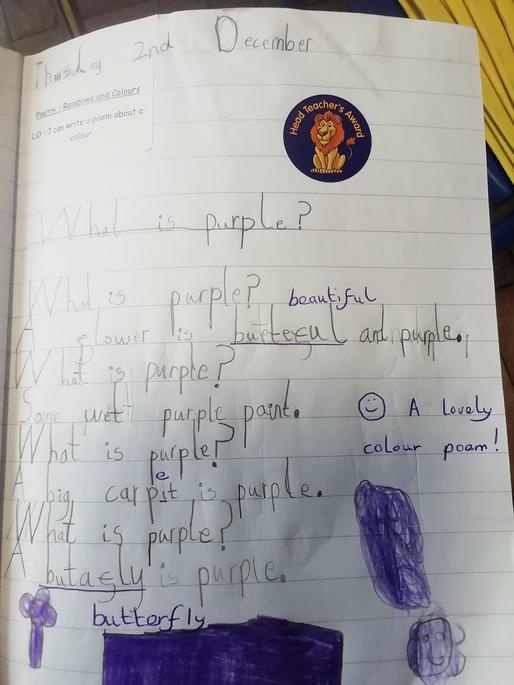 Thursday 2nd December
Poetry - Rainbows and Colours
LO - I can write a poem about a
colour.
Head Teacher's Award
What is purple?
What is purple? beautiful
A flower is buttegul and purple.
What is purple?
Some wett purple paint.
☺ A lovely
What is purple?
colour poam!
e
A big carpit is purple.
What is purple?
A butagly is purple.
butterfly